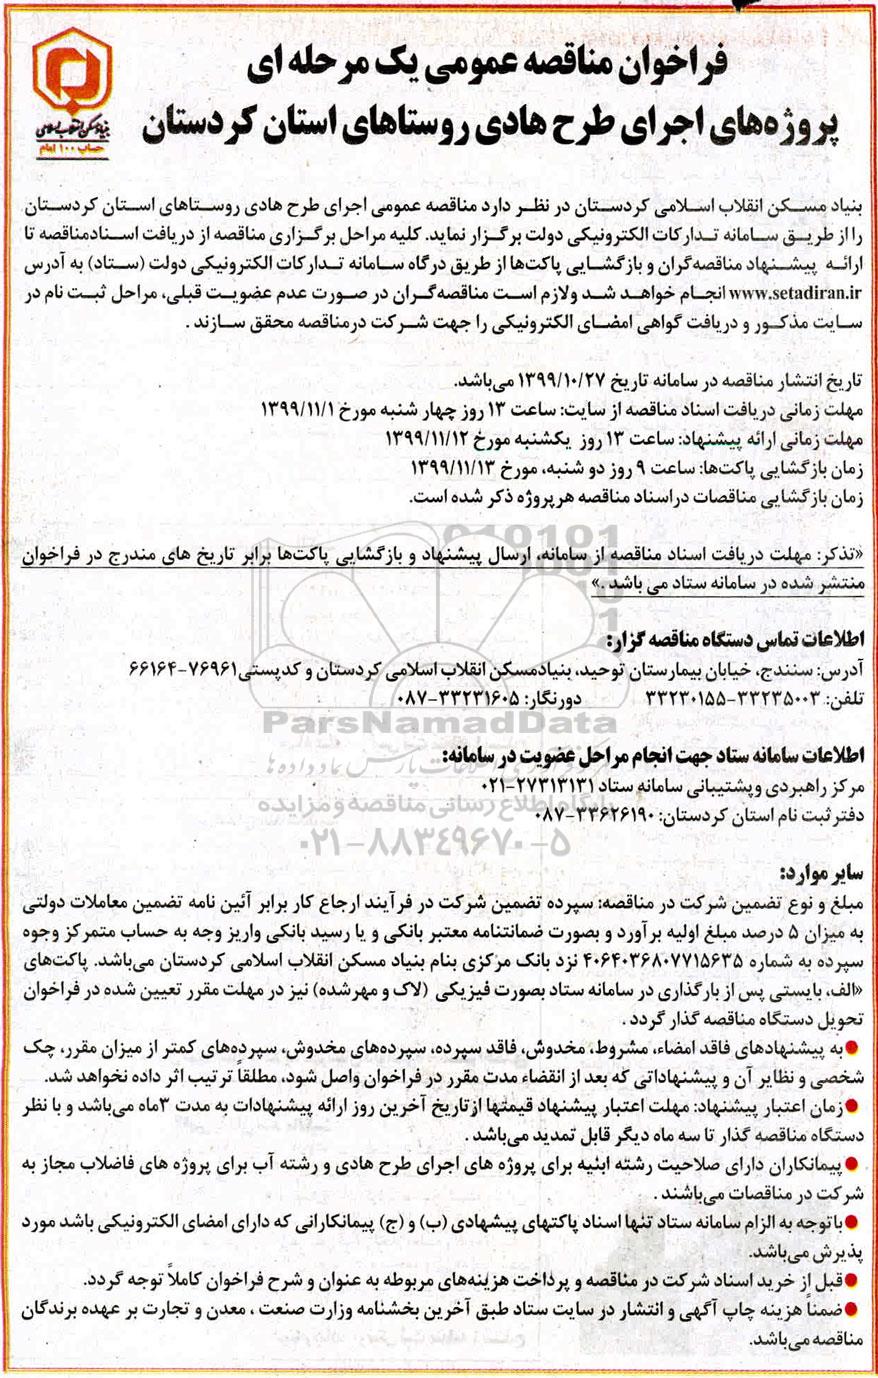 فراخوان مناقصه عمومی یک مرحله ای
پروژه‌های اجرای طرح هادی روستاهای استان کردستان
بنیاد مسکن انقلاب اسلامی
حساب ۱۰۰ امام
بنیاد مسکن انقلاب اسلامی کردستان در نظر دارد مناقصه عمومی اجرای طرح هادی روستاهای استان کردستان
را از طریق سامانه تدارکات الکترونیکی دولت برگزار نماید. کلیه مراحل برگزاری مناقصه از دریافت اسنادمناقصه تا
ارائه پیشنهاد مناقصه‌گران و بازگشایی پاکت‌ها از طریق درگاه سامانه تدارکات الکترونیکی دولت (ستاد) به آدرس
www.setadiran.ir انجام خواهد شد ولازم است مناقصه‌گران در صورت عدم عضویت قبلی، مراحل ثبت نام در
سایت مذکور و دریافت گواهی امضای الکترونیکی را جهت شرکت درمناقصه محقق سازند .
تاریخ انتشار مناقصه در سامانه تاریخ ۱۳۹۹/۱۰/۲۷ می‌باشد.
مهلت زمانی دریافت اسناد مناقصه از سایت: ساعت ۱۳ روز چهار شنبه مورخ ۱۳۹۹/۱۱/۱
مهلت زمانی ارائه پیشنهاد: ساعت ۱۳ روز یکشنبه مورخ ۱۳۹۹/۱۱/۱۲
زمان بازگشایی پاکت‌ها: ساعت ۹ روز دو شنبه، مورخ ۱۳۹۹/۱۱/۱۳
زمان بازگشایی مناقصات دراسناد مناقصه هرپروژه ذکر شده است.
«تذکر: مهلت دریافت اسناد مناقصه از سامانه، ارسال پیشنهاد و بازگشایی پاکت‌ها برابر تاریخ های مندرج در فراخوان
منتشر شده در سامانه ستاد می باشد .»
اطلاعات تماس دستگاه مناقصه گزار:
آدرس: سنندج، خیابان بیمارستان توحید، بنیادمسکن انقلاب اسلامی کردستان و کدپستی ۷۶۹۶۱-۶۶۱۶۴
تلفن: ۳۳۲۳۵۰۰۳-۳۳۲۳۰۱۵۵ دورنگار: ۳۳۲۳۱۶۰۵-۰۸۷
ParsNamadData
اطلاعات سامانه ستاد جهت انجام مراحل عضویت در سامانه:
مرکز راهبردی وپشتیبانی سامانه ستاد ۲۷۳۱۳۱۳۱-۰۲۱
پایگاه اطلاع رسانی مناقصه و مزایده
دفتر ثبت نام استان کردستان: ۳۳۶۲۶۱۹۰-۰۸۷
۰۲۱-۸۸۳۴۹۶۷۰-۵
سایر موارد:
مبلغ و نوع تضمین شرکت در مناقصه: سپرده تضمین شرکت در فرآیند ارجاع کار برابر آئین نامه تضمین معاملات دولتی
به میزان ۵ درصد مبلغ اولیه برآورد و بصورت ضمانتنامه معتبر بانکی و یا رسید بانکی واریز وجه به حساب متمرکز وجوه
سپرده به شماره ۴۰۶۴۰۳۶۸۰۷۷۱۵۶۳۵ نزد بانک مرکزی بنام بنیاد مسکن انقلاب اسلامی کردستان می‌باشد. پاکت‌های
«الف، بایستی پس از بارگذاری در سامانه ستاد بصورت فیزیکی (لاک و مهرشده) نیز در مهلت مقرر تعیین شده در فراخوان
تحویل دستگاه مناقصه گذار گردد .
●به پیشنهادهای فاقد امضاء، مشروط، مخدوش، فاقد سپرده، سپرده‌های مخدوش، سپرده‌های کمتر از میزان مقرر، چک
شخصی و نظایر آن و پیشنهاداتی که بعد از انقضاء مدت مقرر در فراخوان واصل شود، مطلقاً ترتیب اثر داده نخواهد شد.
●زمان اعتبار پیشنهاد: مهلت اعتبار پیشنهاد قیمتها ازتاریخ آخرین روز ارائه پیشنهادات به مدت ۳ماه می‌باشد و با نظر
دستگاه مناقصه گذار تا سه ماه دیگر قابل تمدید می‌باشد .
●پیمانکاران دارای صلاحیت رشته ابنیه برای پروژه های اجرای طرح هادی و رشته آب برای پروژه های فاضلاب مجاز به
شرکت در مناقصات می‌باشند .
●باتوجه به الزام سامانه ستاد تنها اسناد پاکتهای پیشهادی (ب) و (ج) پیمانکارانی که دارای امضای الکترونیکی باشد مورد
پذیرش می‌باشد.
●قبل از خرید اسناد شرکت در مناقصه و پرداخت هزینه‌های مربوطه به عنوان و شرح فراخوان کاملاً توجه گردد.
●ضمناً هزینه چاپ آگهی و انتشار در سایت ستاد طبق آخرین بخشنامه وزارت صنعت ، معدن و تجارت بر عهده برندگان
مناقصه می‌باشد.